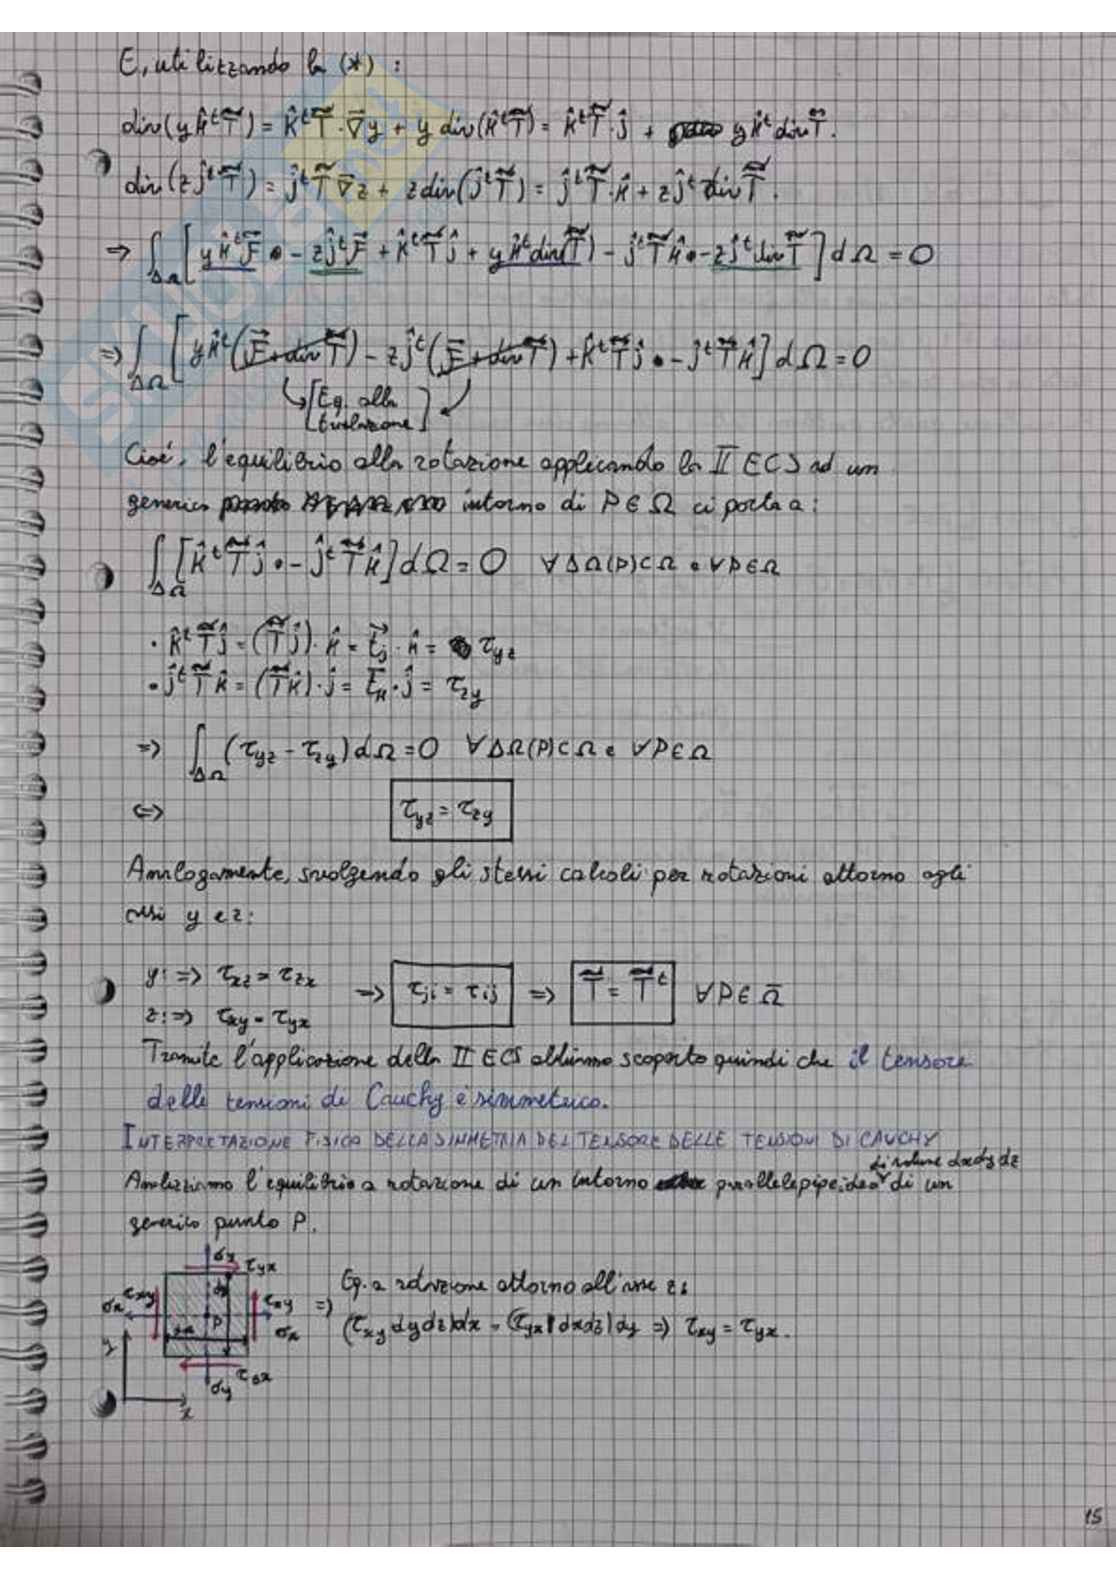 E, utilizzando la (*) :
div(y k̂ᵗ T̃) = k̂ᵗ T̃ · ∇⃗y + y div(k̂ᵗ T̃) = k̂ᵗ T̃ · ĵ + y k̂ᵗ div T̃.
div(z ĵᵗ T̃) = ĵᵗ T̃ ∇⃗z + z div(ĵᵗ T̃) = ĵᵗ T̃ · k̂ + z ĵᵗ div T̃.
⇒ ∫_ΔΩ [y k̂ᵗ F⃗ - z ĵᵗ F⃗ + k̂ᵗ T̃ ĵ + y k̂ᵗ div(T̃) - ĵᵗ T̃ k̂ - z ĵᵗ div T̃] dΩ = 0
⇒ ∫_ΔΩ [y k̂ᵗ (F⃗ + div T̃) - z ĵᵗ (F⃗ + div T̃) + k̂ᵗ T̃ ĵ - ĵᵗ T̃ k̂] dΩ = 0
[Eq. alla
traslazione]
Cioé, l'equilibrio alla rotazione applicando la II ECS ad un
generico intorno di P ∈ Ω ci porta a:
∫_ΔΩ [k̂ᵗ T̃ ĵ - ĵᵗ T̃ k̂] dΩ = 0 ∀ ΔΩ(P) ⊂ Ω e ∀ P ∈ Ω
· k̂ᵗ T̃ ĵ = (T̃ ĵ) · k̂ = t⃗_j · k̂ = τ_yz
· ĵᵗ T̃ k̂ = (T̃ k̂) · ĵ = t⃗_k · ĵ = τ_zy
⇒ ∫_ΔΩ (τ_yz - τ_zy) dΩ = 0 ∀ ΔΩ(P) ⊂ Ω e ∀ P ∈ Ω
⇔ τ_yz = τ_zy
Analogamente, svolgendo gli stessi calcoli per rotazioni attorno agli
assi y e z:
y: ⇒ τ_xz = τ_zx
z: ⇒ τ_xy = τ_yx
⇒ τ_ji = τ_ij ⇒ T̃ = T̃ᵗ ∀ P ∈ Ω̄
Tramite l'applicazione della II ECS abbiamo scoperto quindi che il tensore
delle tensioni di Cauchy è simmetrico.
INTERPRETAZIONE FISICA DELLA SIMMETRIA DEL TENSORE DELLE TENSIONI DI CAUCHY
di volume dxdydz
Analizziamo l'equilibrio a rotazione di un intorno parallelepipedo di un
generico punto P.
σx τyx
dy
σx τxy τxy σx
dx P
y
σy τyx
x
Eq. a rotazione attorno all'asse z:
⇒ (τ_xy dydz)dx = (τ_yx dxdz)dy ⇒ τ_xy = τ_yx.
15